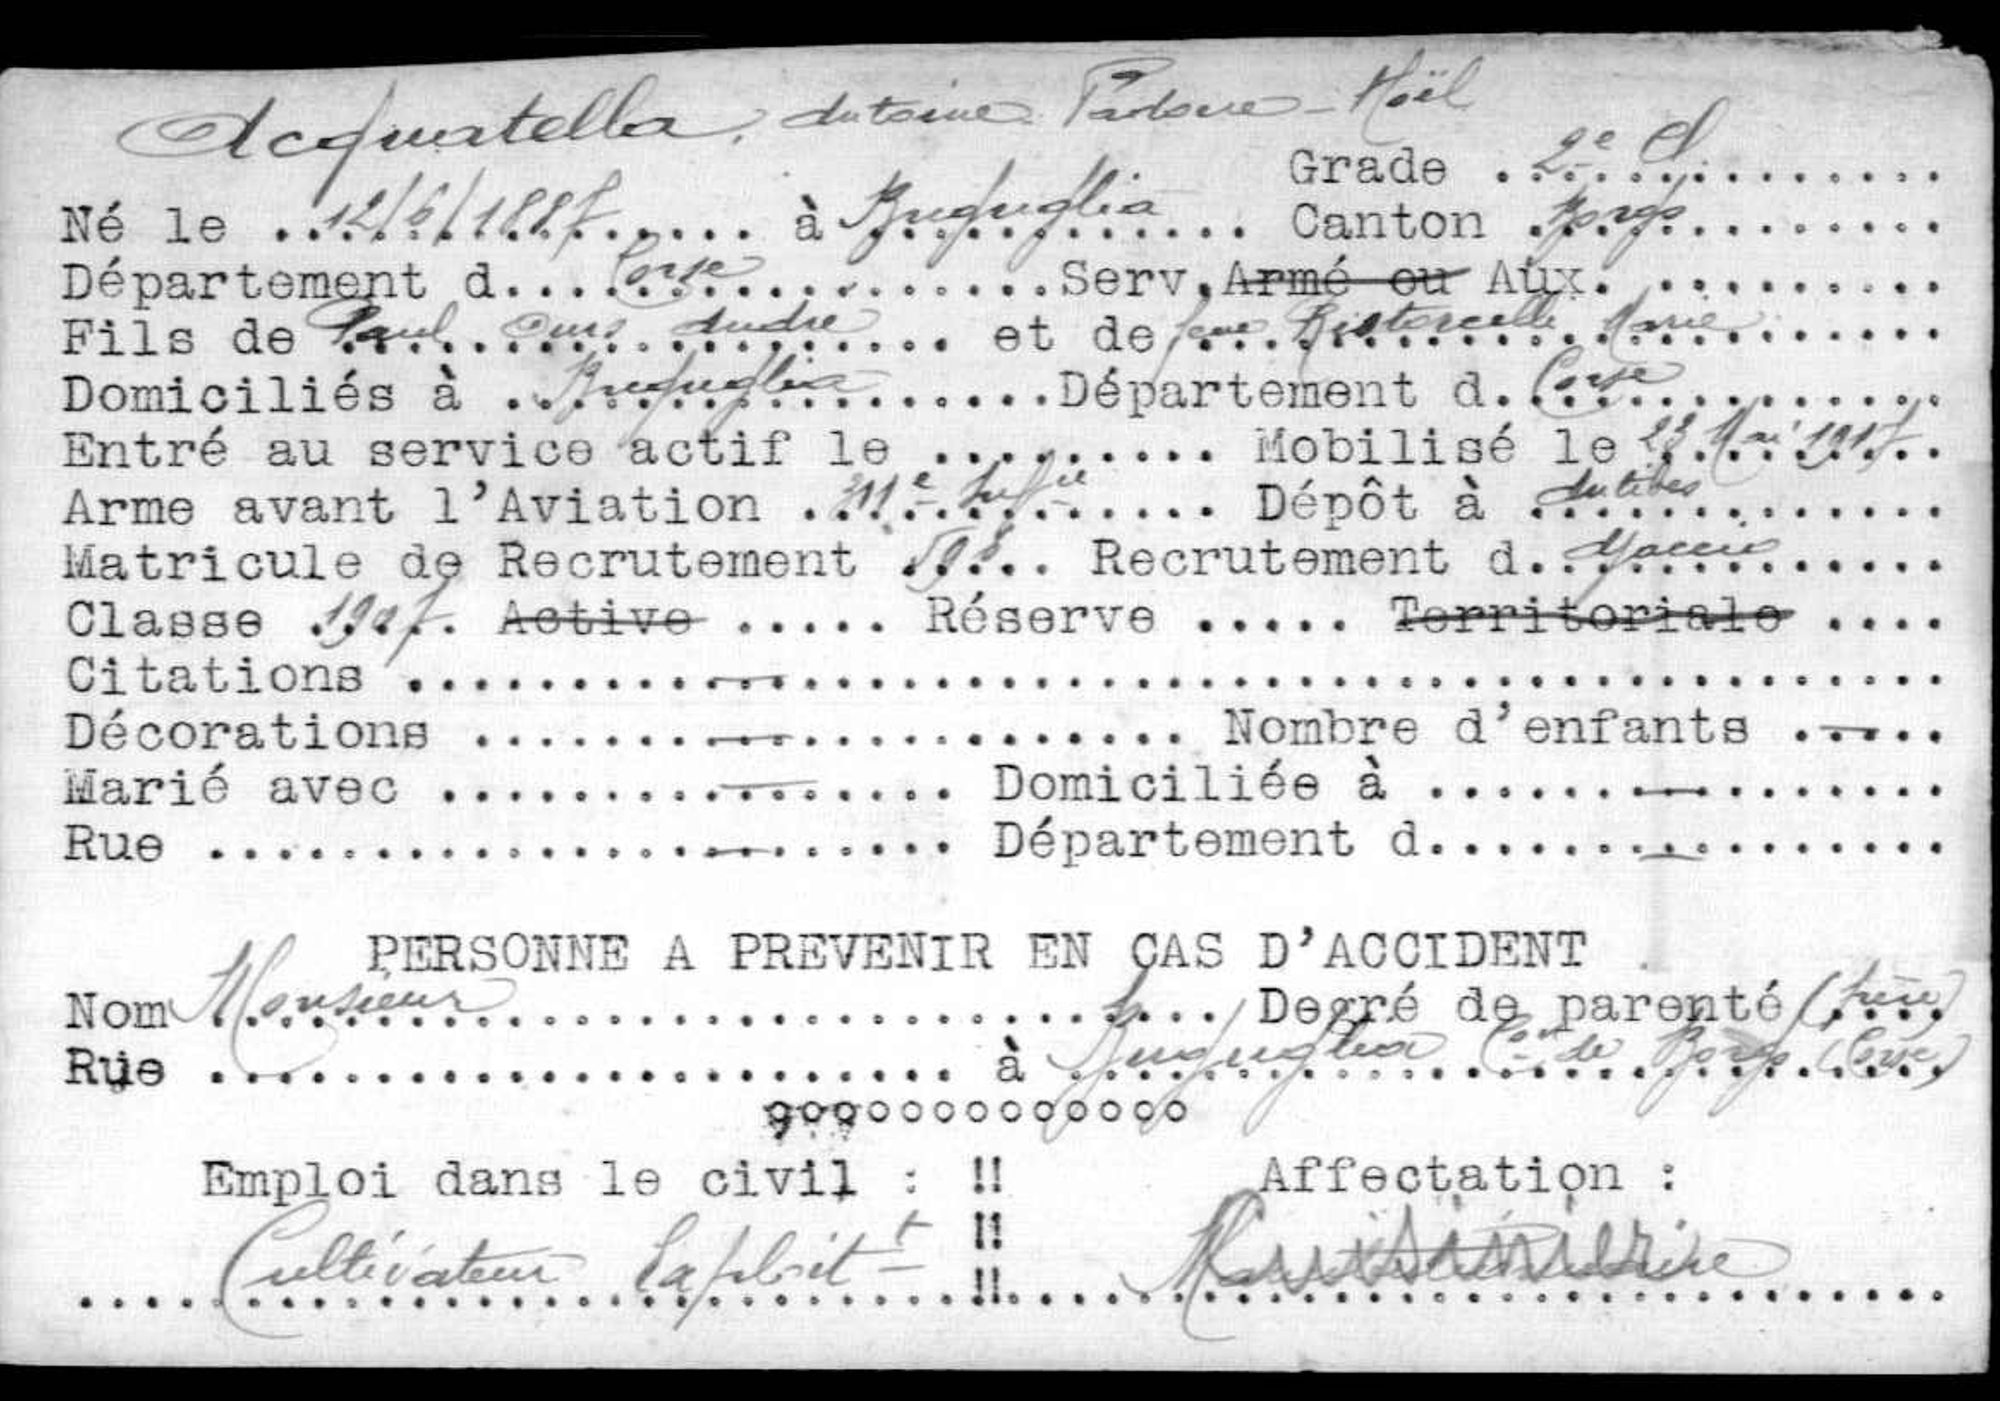 Acquatella, Antoine Pardoue-Noël
Grade 2e Cl.
Né le 12/6/1887 à Buguglia Canton Borgo
Département d. Corse Serv. Armé ou Aux.
Fils de Paul Ours André et de feue Ristorcelli Marie
Domiciliés à Buguglia Département d. Corse
Entré au service actif le ......... Mobilisé le 23 Mai 1917
Arme avant l'Aviation 311e Inf ie Dépôt à Antibes
Matricule de Recrutement 598 Recrutement d. Ajaccio
Classe 1907 Active ..... Réserve ..... Territoriale ....
Citations — 
Décorations — Nombre d'enfants —
Marié avec — Domiciliée à —
Rue — Département d. —
PERSONNE A PREVENIR EN CAS D'ACCIDENT
Nom Monsieur Degré de parenté (frère)
Rue ...................... à Buguglia Con de Borgo (Corse)
ooooooooooooo
Emploi dans le civil : !! Affectation :
!!
Cultivateur Exploit t !!